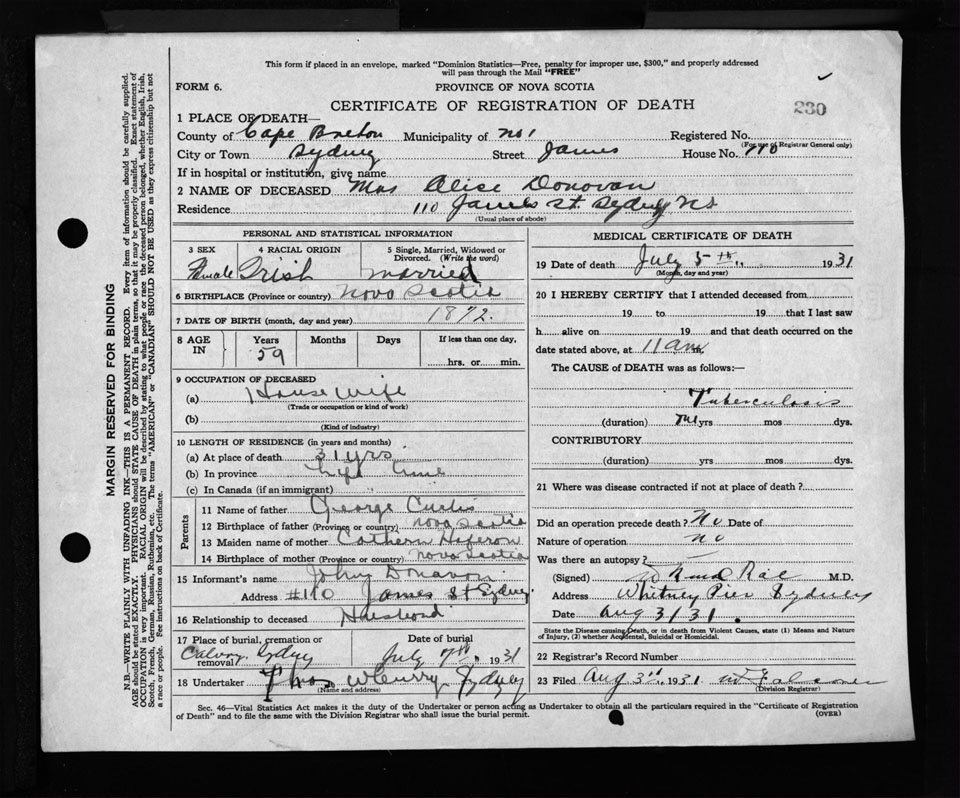 This form if placed in an envelope, marked "Dominion Statistics—Free, penalty for improper use, $300," and properly addressed
will pass through the Mail "FREE"
FORM 6.
PROVINCE OF NOVA SCOTIA
CERTIFICATE OF REGISTRATION OF DEATH
230
1 PLACE OF DEATH—
County of Cape Breton Municipality of No 1 Registered No.
(For use of Registrar General only)
City or Town Sydney Street James House No. 110
If in hospital or institution, give name
2 NAME OF DECEASED Mrs Alise Donovan
Residence 110 James St Sydney NS
(Usual place of abode)
PERSONAL AND STATISTICAL INFORMATION
3 SEX 4 RACIAL ORIGIN 5 Single, Married, Widowed or
Divorced. (Write the word)
Female Irish married
6 BIRTHPLACE (Province or country) Nova Scotia
7 DATE OF BIRTH (month, day and year) 1872.
8 AGE IN Years Months Days If less than one day,
59 hrs. or min.
9 OCCUPATION OF DECEASED
(a) House Wife
(Trade or occupation or kind of work)
(b)
(Kind of industry)
10 LENGTH OF RESIDENCE (in years and months)
(a) At place of death 31 yrs
(b) In province Life time
(c) In Canada (if an immigrant)
Parents
11 Name of father George Curtis
12 Birthplace of father (Province or country) Nova Scotia
13 Maiden name of mother Cathern Heferon
14 Birthplace of mother (Province or country) Nova Scotia
15 Informant's name John Donavon
Address #110 James St Sydney
16 Relationship to deceased Husband
17 Place of burial, cremation or
removal Calvary, Sydney
Date of burial
July 7th, 1931
18 Undertaker Thos Sydney
(Name and address)
MEDICAL CERTIFICATE OF DEATH
19 Date of death July 5th, 1931
(Month, day and year)
20 I HEREBY CERTIFY that I attended deceased from
19 to 19 that I last saw
h alive on 19 and that death occurred on the
date stated above, at 11 am m.
The CAUSE of DEATH was as follows:—
Tuberculosis
(duration) yrs mos dys.
CONTRIBUTORY
(duration) yrs mos dys.
21 Where was disease contracted if not at place of death?
Did an operation precede death? No Date of
Nature of operation no
Was there an autopsy? —
(Signed) Rae M.D.
Address Whitney Pier Sydney
Date Aug 3/31.
State the Disease causing Death, or in death from Violent Causes, state (1) Means and Nature
of Injury, (2) whether Accidental, Suicidal or Homicidal.
22 Registrar's Record Number
23 Filed Aug 3rd, 1931
(Division Registrar)
Sec. 46—Vital Statistics Act makes it the duty of the Undertaker or person acting as Undertaker to obtain all the particulars required in the "Certificate of Registration
of Death" and to file the same with the Division Registrar who shall issue the burial permit.
(OVER)
MARGIN RESERVED FOR BINDING
N.B.—WRITE PLAINLY WITH UNFADING INK—THIS IS A PERMANENT RECORD. Every item of information should be carefully supplied.
AGE should be stated EXACTLY. PHYSICIANS should STATE CAUSE OF DEATH in plain terms, so that it may be properly classified. Exact statement of
OCCUPATION is very important. RACIAL ORIGIN will be described by stating to what people or race the deceased person belonged, whether English, Irish,
Scotch, French, German, Russian, Ruthenian, etc. The terms "AMERICAN" or "CANADIAN" SHOULD NOT BE USED as they express citizenship but not
a race or people. See instructions on back of Certificate.